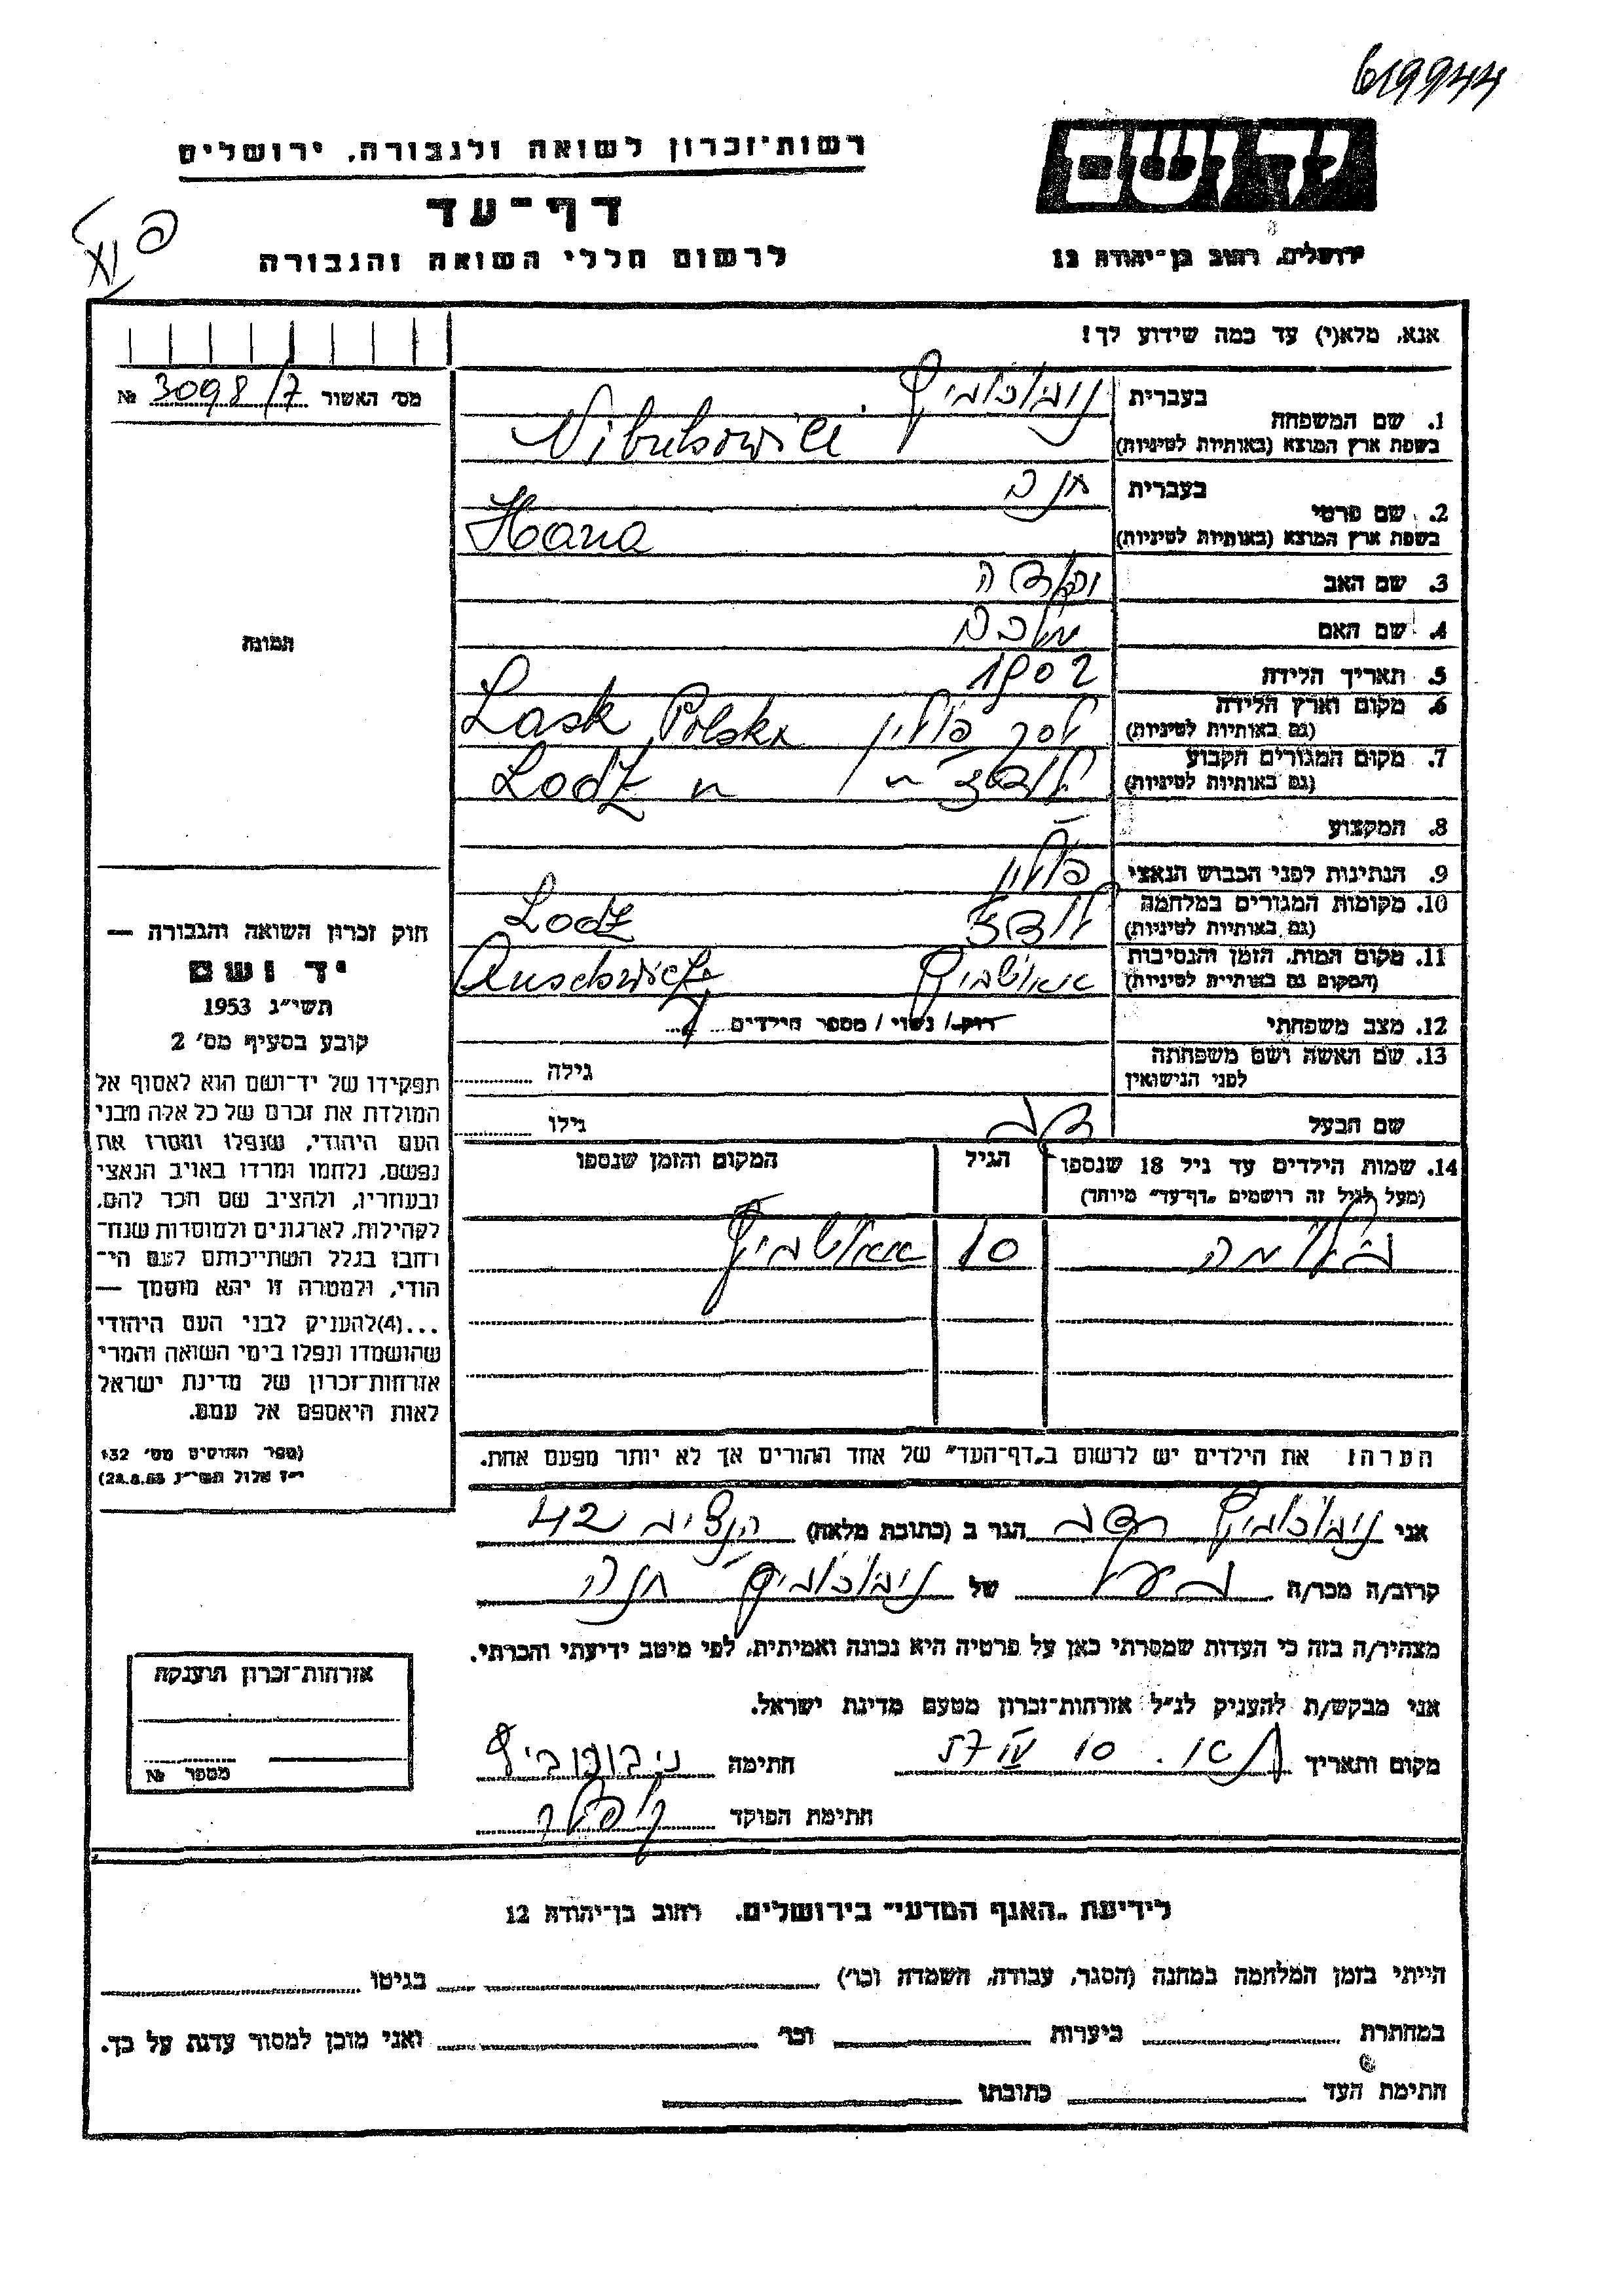 619944
יד ושם
ירושלים, רחוב בן־יהודה 12
רשות־זכרון לשואה ולגבורה, ירושלים
דף־עד
לרשום חללי השואה והגבורה
אנא, מלא(י) עד כמה שידוע לך!
מס' האשור 3098/7 №
1. שם המשפחה
בעברית ניבוכוביץ
בשפת ארץ המוצא (באותיות לטיניות) Nibukowici
2. שם פרטי
בעברית חנה
בשפת ארץ המוצא (באותיות לטיניות) Hana
3. שם האב
4. שם האם מלכה
5. תאריך הלידה 1902
6. מקום וארץ הלידה
(גם באותיות לטיניות) לסק פולין Lask Polska
7. מקום המגורים הקבוע
(גם באותיות לטיניות) לודז' " Lodz "
8. המקצוע
9. הנתינות לפני הכבוש הנאצי פולין
10. מקומות המגורים במלחמה
(גם באותיות לטיניות) לודז Lodz
11. מקום המות, הזמן והנסיבות
(המקום גם באותיות לטיניות) אאושביץ Auschwicz
12. מצב משפחתי רוק / נשוי / מספר הילדים
13. שם האשה ושם משפחתה
לפני הנישואין
גילה
שם הבעל
גילו
14. שמות הילדים עד גיל 18 שנספו
(מעל לגיל זה רושמים „דף־עד" מיוחד)
הגיל
המקום והזמן שנספו
10 אאושביץ
הערה: את הילדים יש לרשום ב„דף־העד" של אחד ההורים אך לא יותר מפעם אחת.
תמונה
חוק זכרון השואה והגבורה —
יד ושם
תשי"ג 1953
קובע בסעיף מס' 2
תפקידו של יד־ושם הוא לאסוף אל
המולדת את זכרם של כל אלה מבני
העם היהודי, שנפלו ומסרו את
נפשם, נלחמו ומרדו באויב הנאצי
ובעוזריו, ולהציב שם וזכר להם,
לקהילות, לארגונים ולמוסדות שנח־
רחבו בגלל השתייכותם לעם הי־
הודי, ולמטרה זו יהא מוסמך —
...(4)להעניק לבני העם היהודי
שהושמדו ונפלו בימי השואה והמרי
אזרחות־זכרון של מדינת ישראל
לאות היאספם אל עמם.
(ספר החוקים מס' 132
י"ז אלול תשי"ג 28.8.53)
אני ניבוכוביץ הגר ב (כתובת מלאה) 42
קרוב/ה מכר/ה בעל של ניבוכוביץ חנה
מצהיר/ה בזה כי העדות שמסרתי כאן על פרטיה היא נכונה ואמיתית, לפי מיטב ידיעתי והכרתי.
אני מבקש/ת להעניק לנ"ל אזרחות־זכרון מטעם מדינת ישראל.
מקום ותאריך 10 57 חתימה ניבוכוביץ
חתימת הפוקד
אזרחות־זכרון הוענקה
מספר №
לידיעת „האגף המדעי" בירושלים, רחוב בן־יהודה 12
הייתי בזמן המלחמה במחנה (הסגר, עבודה, השמדה וכו') בגיטו
במחתרת ביערות וכו' ואני מוכן למסור עדות על כך.
חתימת העד כתובתו